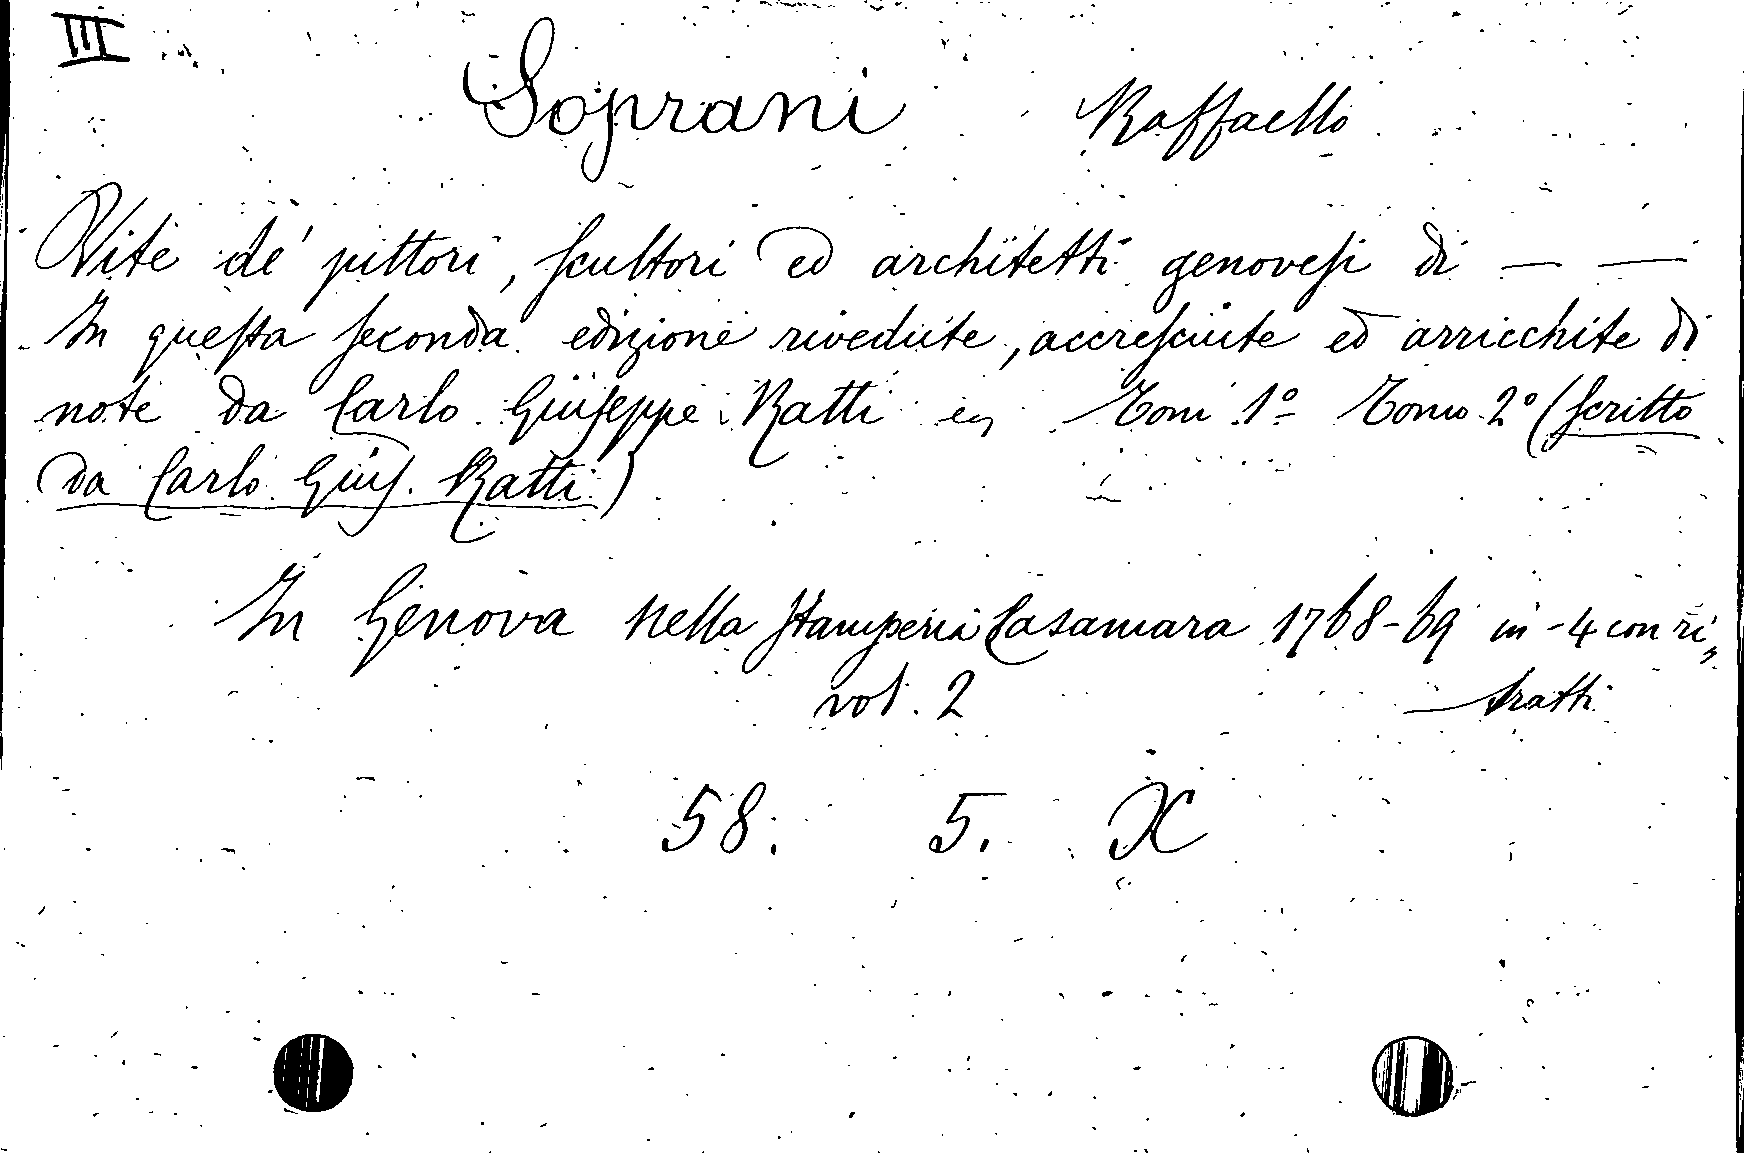 III
Soprani Raffaello
Vite de' pittori, scultori ed architetti genovesi di — —
In questa seconda edizione rivedute, accresciute ed arricchite di
note da Carlo Giuseppe Ratti Tomi 1º Tomo 2º (scritto
da Carlo Gius. Ratti)
In Genova nella Stamperia Casamara 1768-69 in-4 con ri„
vol. 2 tratti
58. 5. X